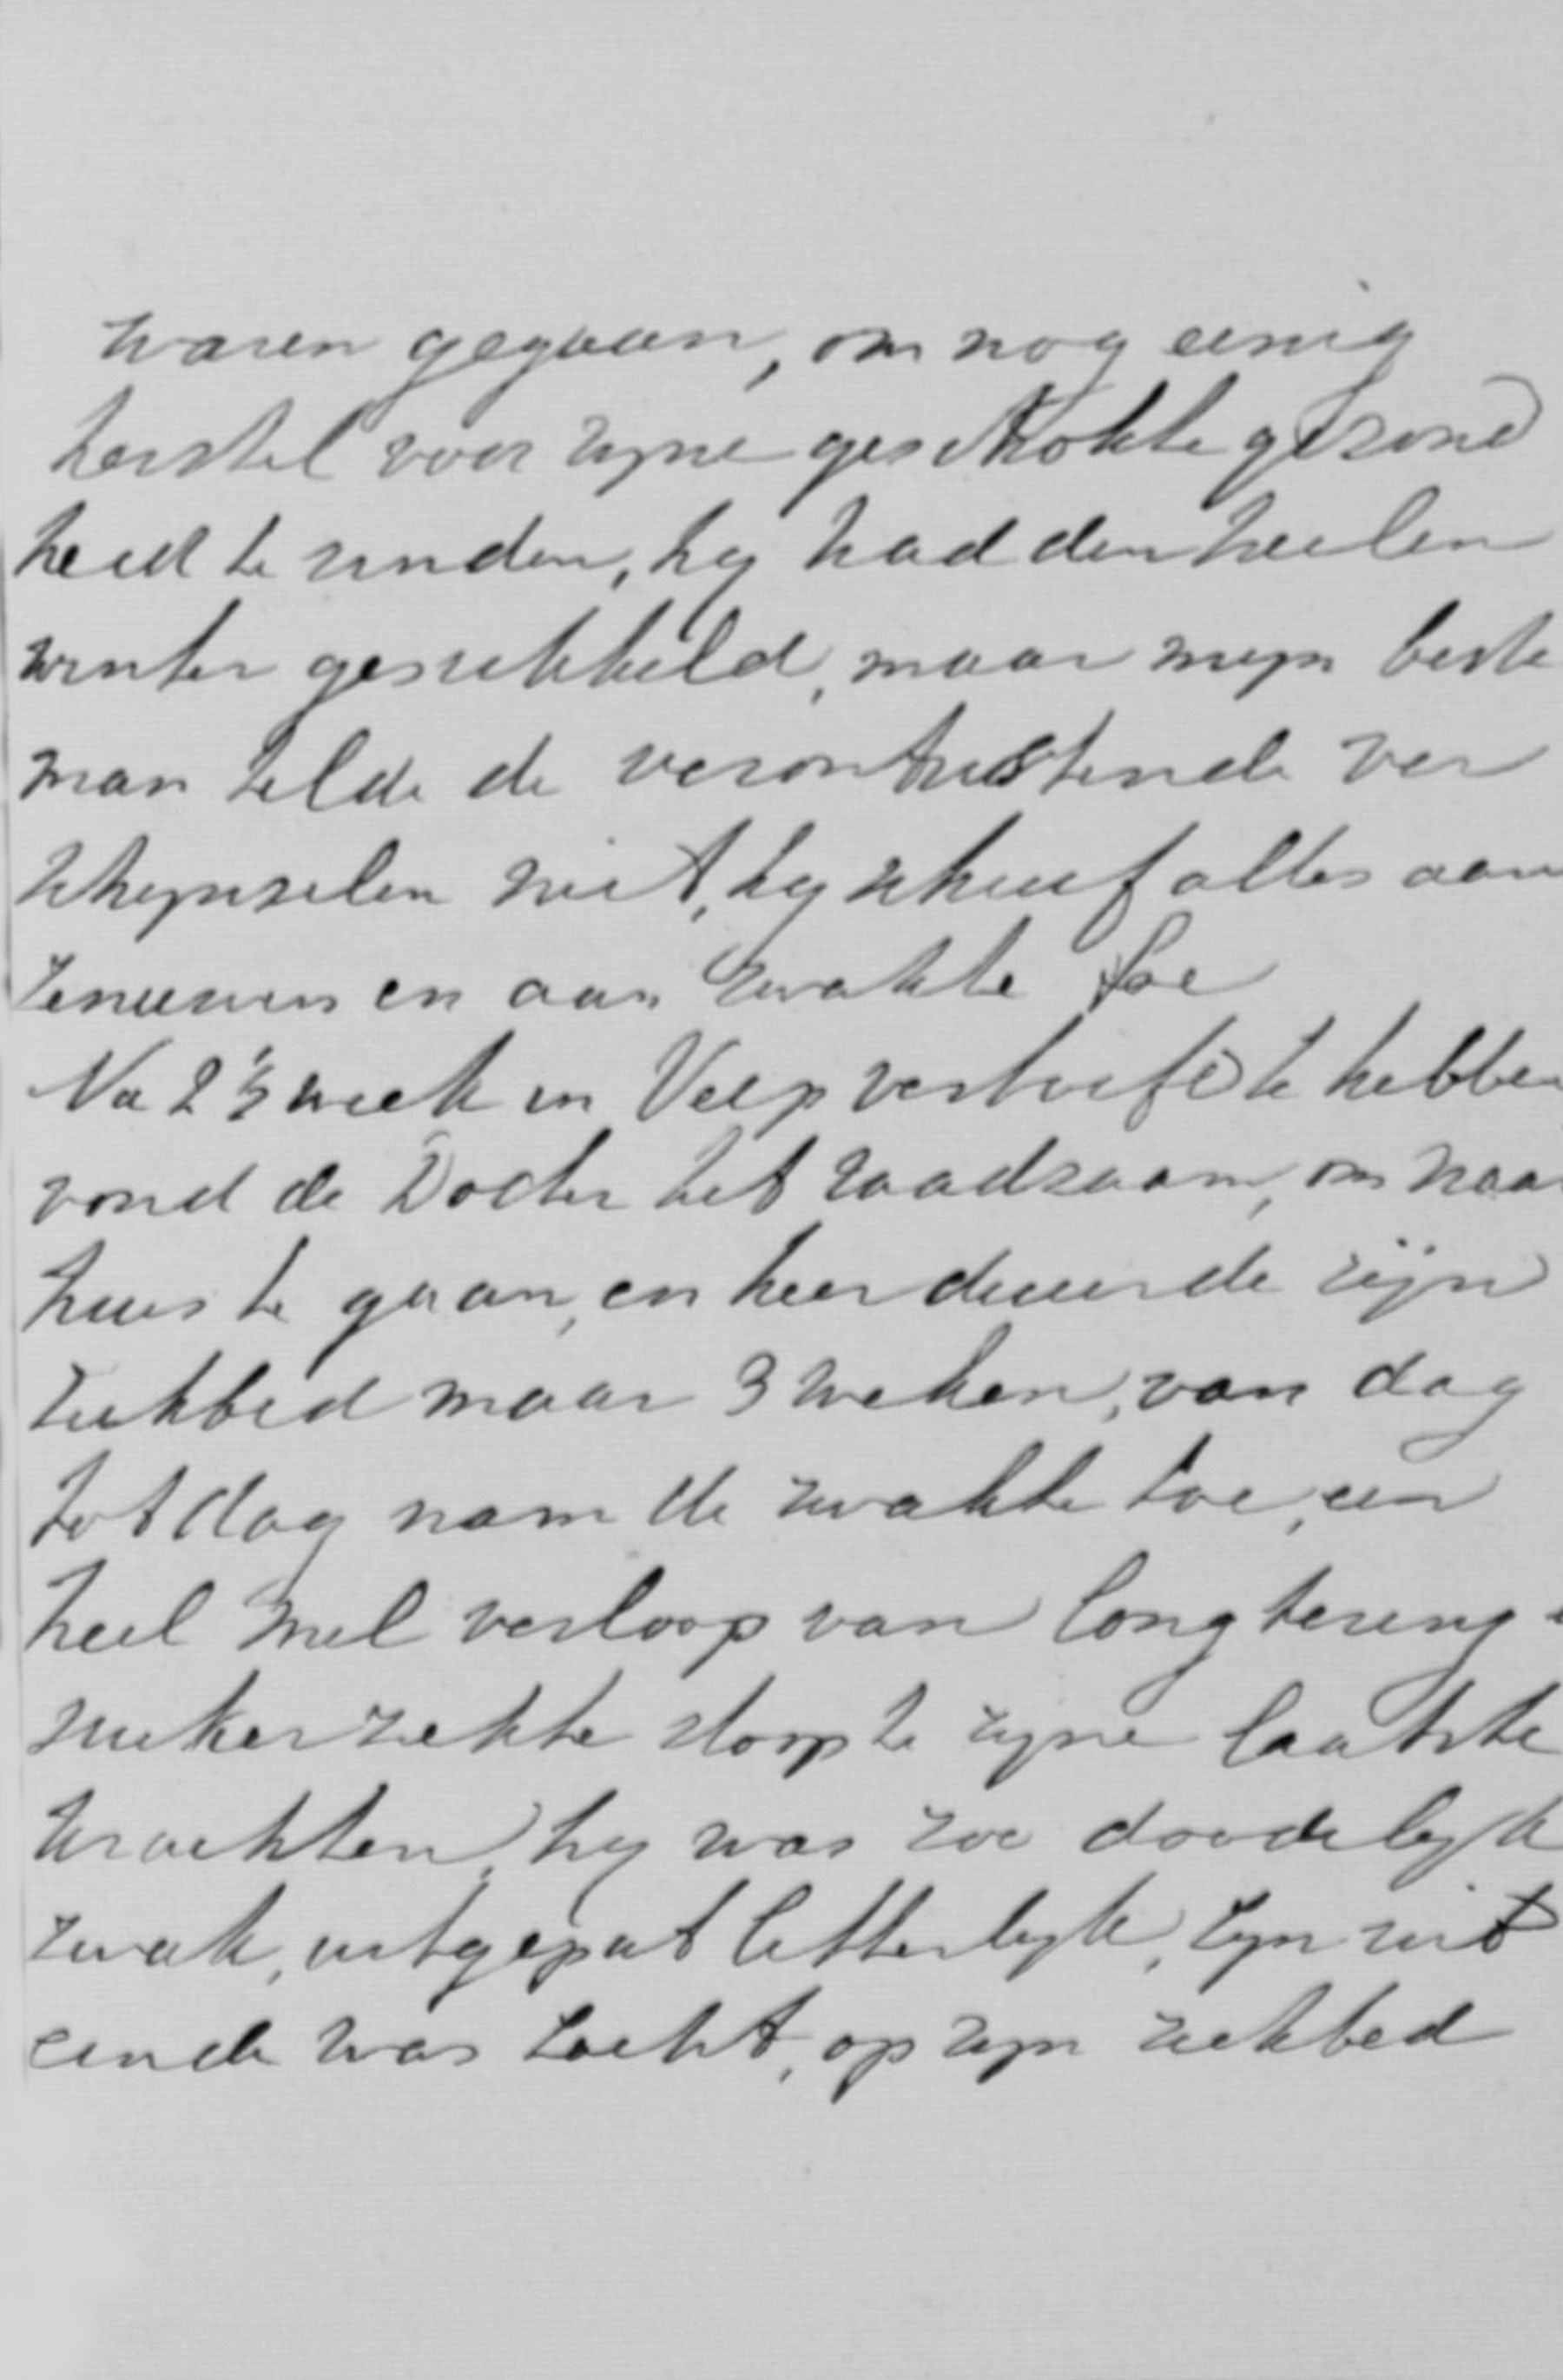 waren gegaan, om nog eenig
herstel voor zyne geschokte gezond
heid te vinden, hy had den heelen
winter gesukkeld, maar myn beste
man telde de verontrustende ver
schynselen niet, hy schreef alles aan
zenuwen en aan zwakte toe
Na 2 1/2 week in Velp vertoefd te hebben
vond de Docter het raadzaam, om naar
huis te gaan, en hier duurde zijn
ziekbed maar 3 weken, van dag
tot dag nam de zwakte toe, een
heel snel verloop van longtering
suikerziekte sloopte zyne laatste
krachten, hy was zoo doodelyk
zwak, uitgeput letterlyk, zyn uit
einde was zacht, op zyn ziekbed